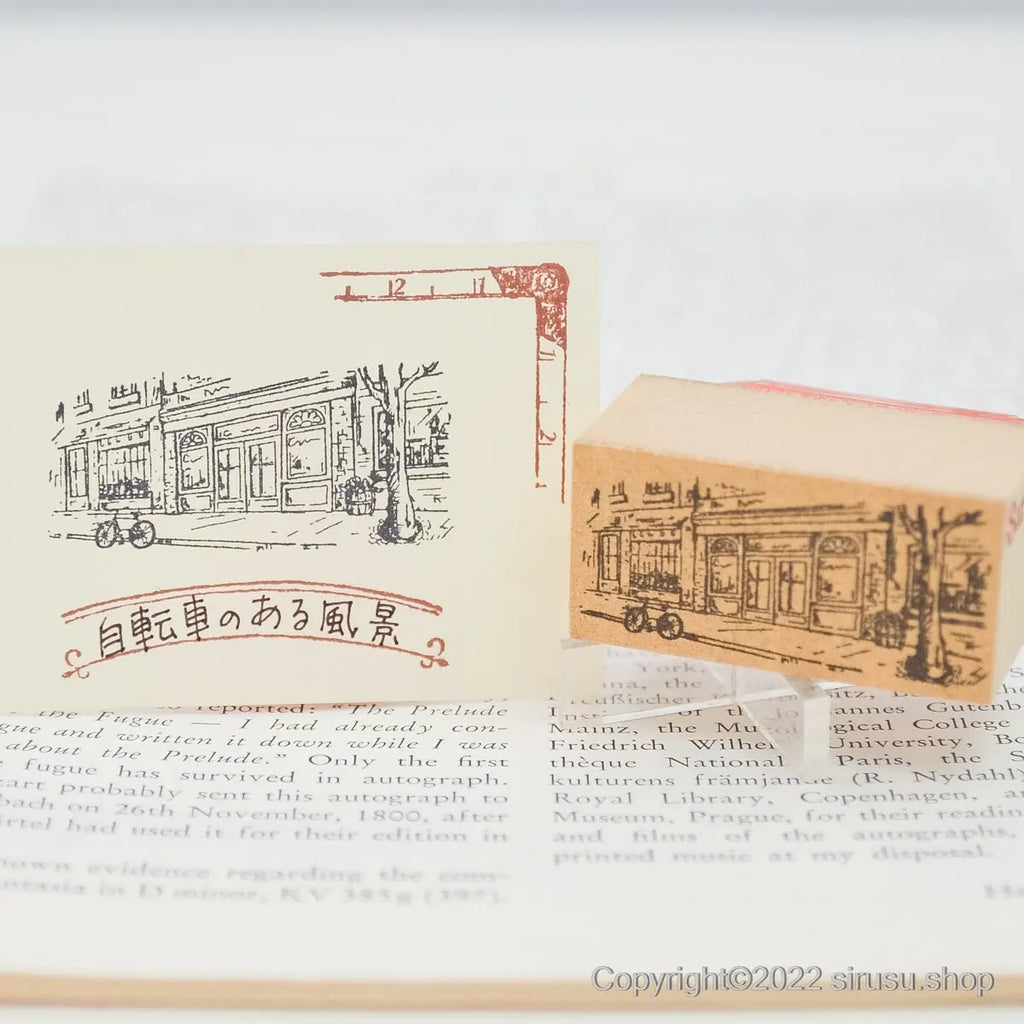 12 11
1
2
自転車のある風景
reported: "The Prelude
the Fugue — I had already con-
gue and written it down while I was
about the Prelude." Only the first
fugue has survived in autograph.
zart probably sent this autograph to
bach on 26th November, 1800, after
irtel had used it for their edition in
nown evidence regarding the com-
ntasia in D minor, KV 385g (397).
York,
nna, the
Preußischer
of the Johannes Gutenb
Mainz, the Musicological College
Friedrich Wilhelm University, Bo
thèque National Paris, the S
kulturens främjande (R. Nydahl)
Royal Library, Copenhagen, a
Museum, Prague, for their readin
and films of the autographs,
printed music at my disposal.
Copyright©2022 sirusu.shop